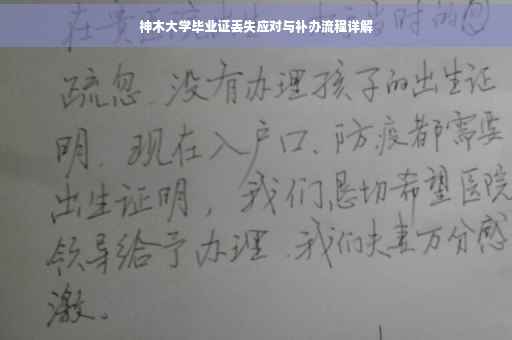 神木大学毕业证丢失应对与补办流程详解
疏忽、没有办理孩子的出生证
明、现在入户口、防疫都需要
出生证明，我们恳切希望医院
领导给予办理、我们夫妻万分感
激。